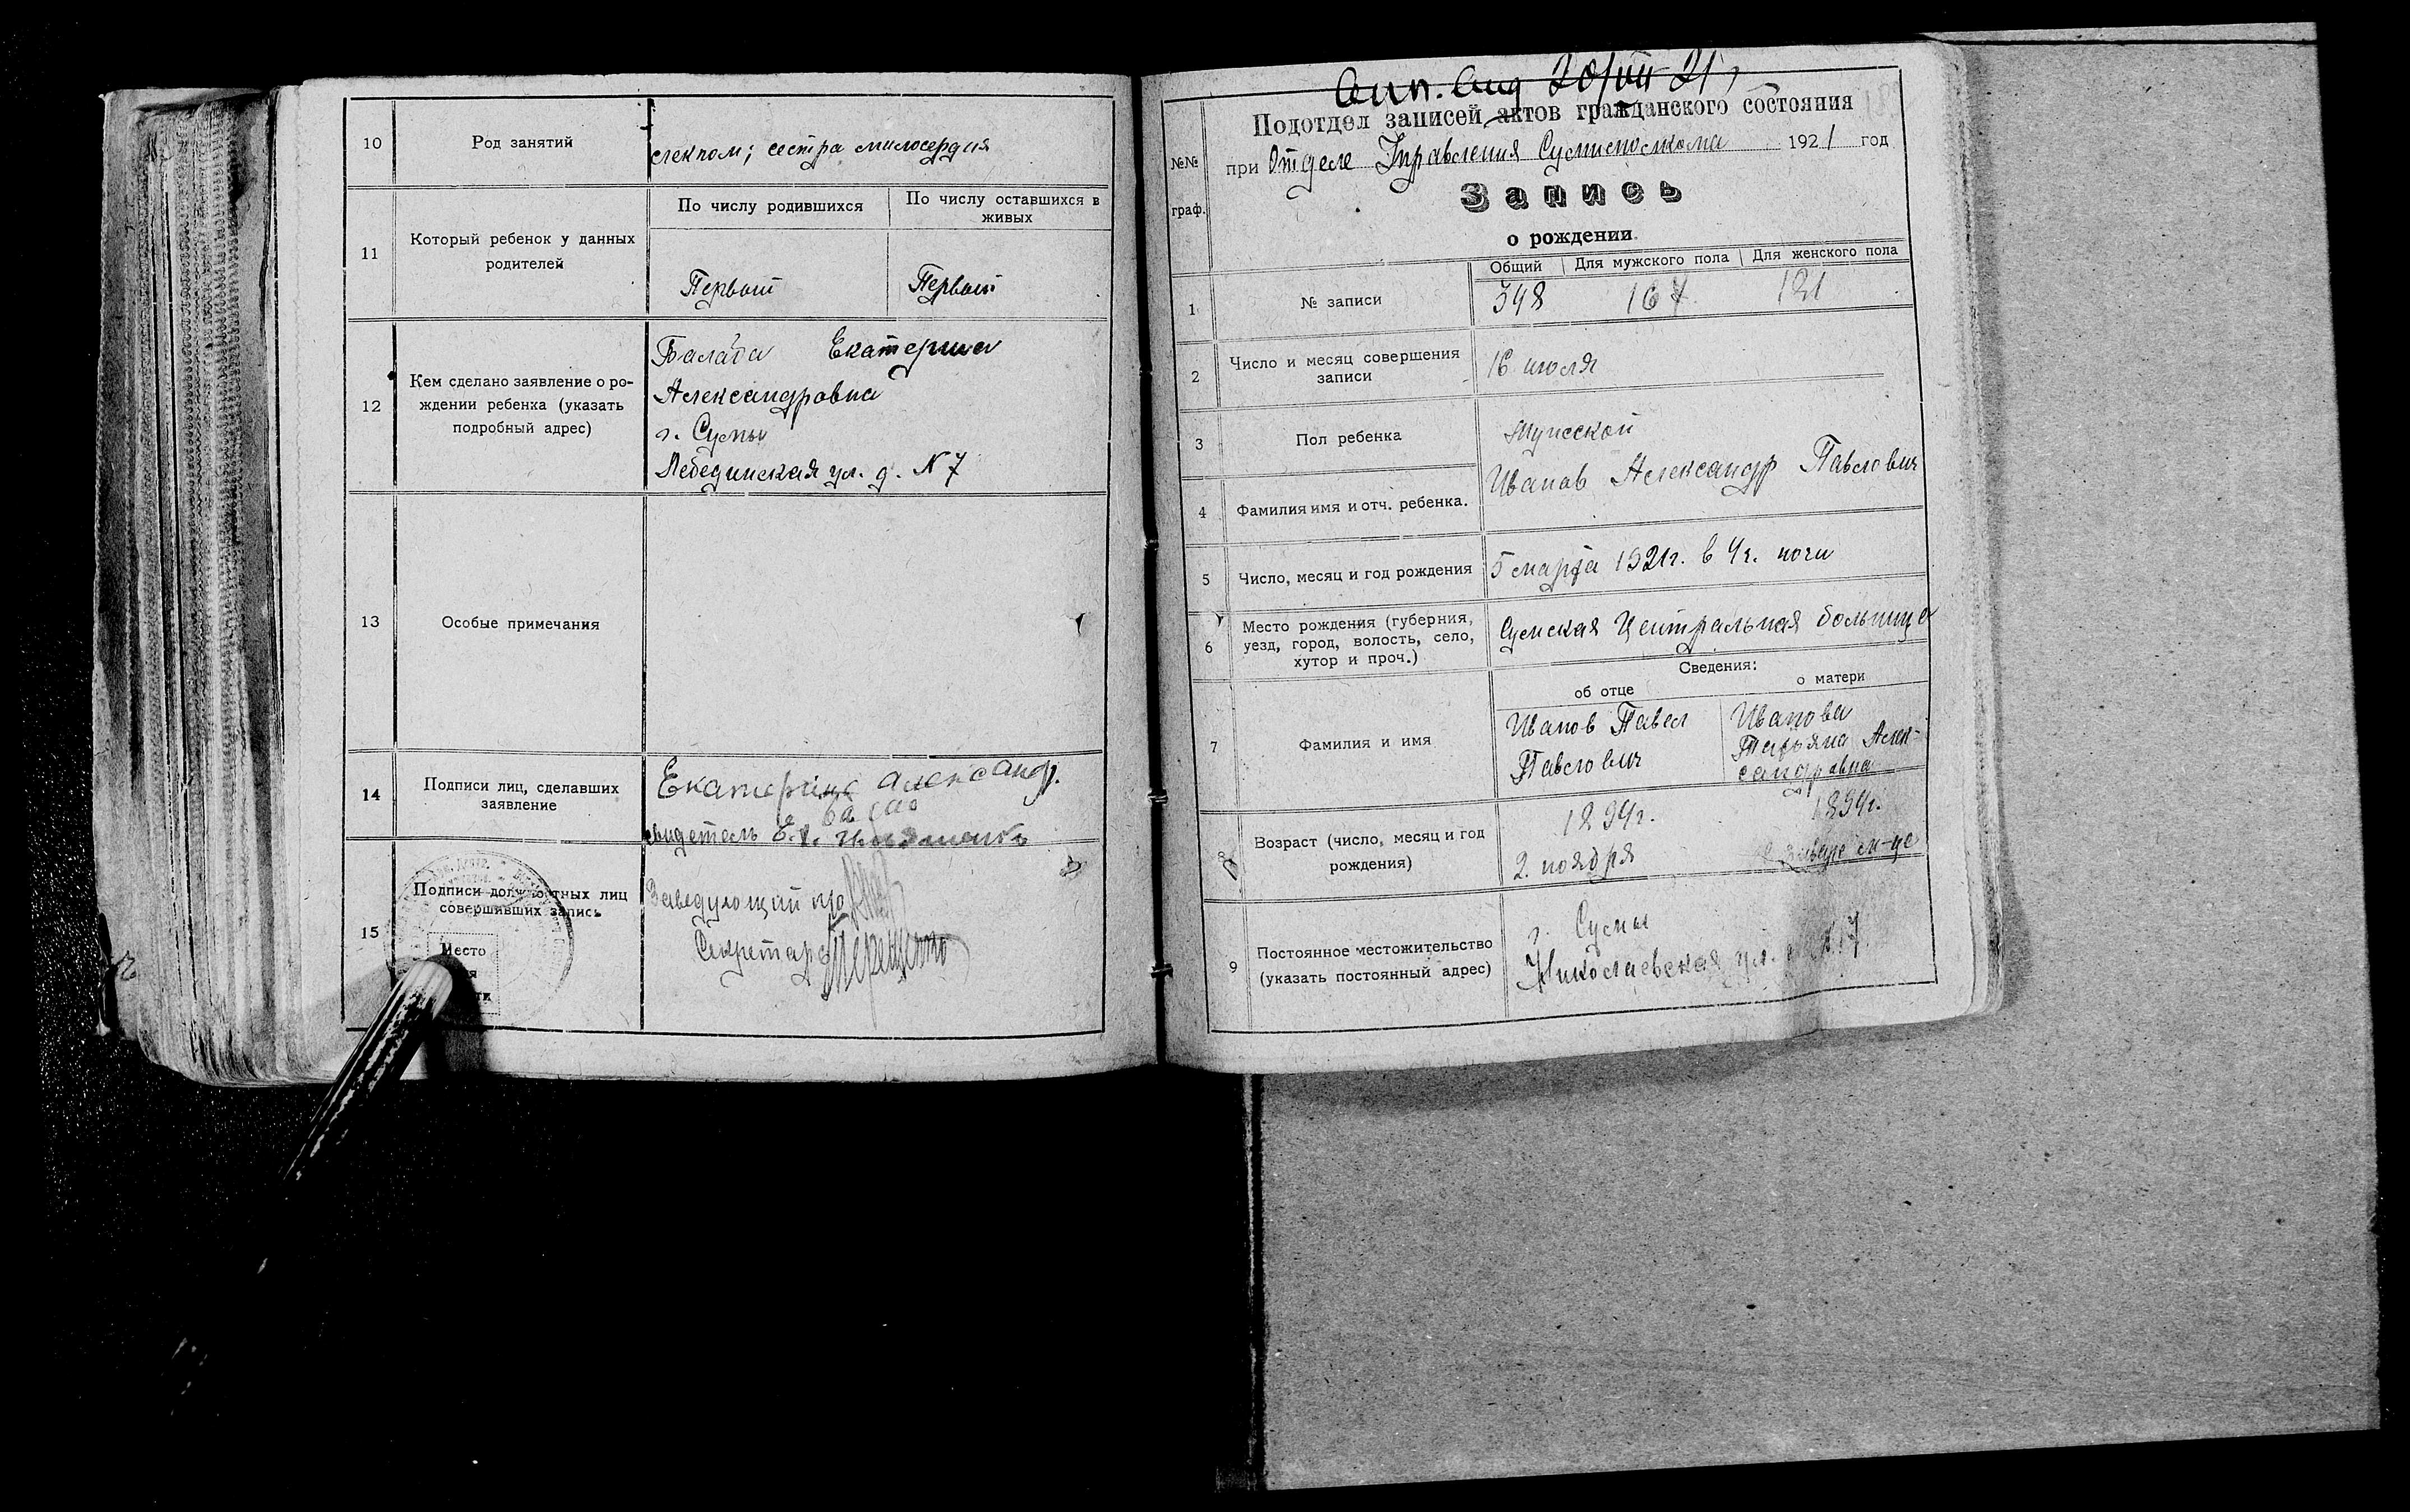 10
Род занятий
лекпом; сестра милосердия
11
Который ребенок у данных
родителей
По числу родившихся
По числу оставшихся в
живых
Первый
Первый
12
Кем сделано заявление о ро-
ждении ребенка (указать
подробный адрес)
Балаба Екатерина
Александровна
г. Сумы
Лебединская ул. д. N 7
13
Особые примечания
14
Подписи лиц, сделавших
заявление
Екатерина Александр.
свидетель
15
Подписи должностных лиц
совершивших запись
Место
Заведующий
Секретарь
20/VII 21
Подотдел записей актов гражданского состояния
при Отделе Управления 1921 год
№№
граф.
Запись
о рождении.
Общий
Для мужского пола
Для женского пола
1
№ записи
348
167
121
2
Число и месяц совершения
записи
16 июля
3
Пол ребенка
Мужской
4
Фамилия имя и отч. ребенка.
Иванов Александр Павлович
5
Число, месяц и год рождения
5 марта 1921г. в 4 ч. ночи
6
Место рождения (губерния,
уезд, город, волость, село,
хутор и проч.)
Сумская Центральная больница
Сведения:
об отце
о матери
7
Фамилия и имя
Иванов Павел
Павлович
Иванова
Татьяна Алек-
сандровна
8
Возраст (число, месяц и год
рождения)
1894г.
2. ноября
1894г.
январе м-це
9
Постоянное местожительство
(указать постоянный адрес)
г. Сумы
Николаевская ул. N 17